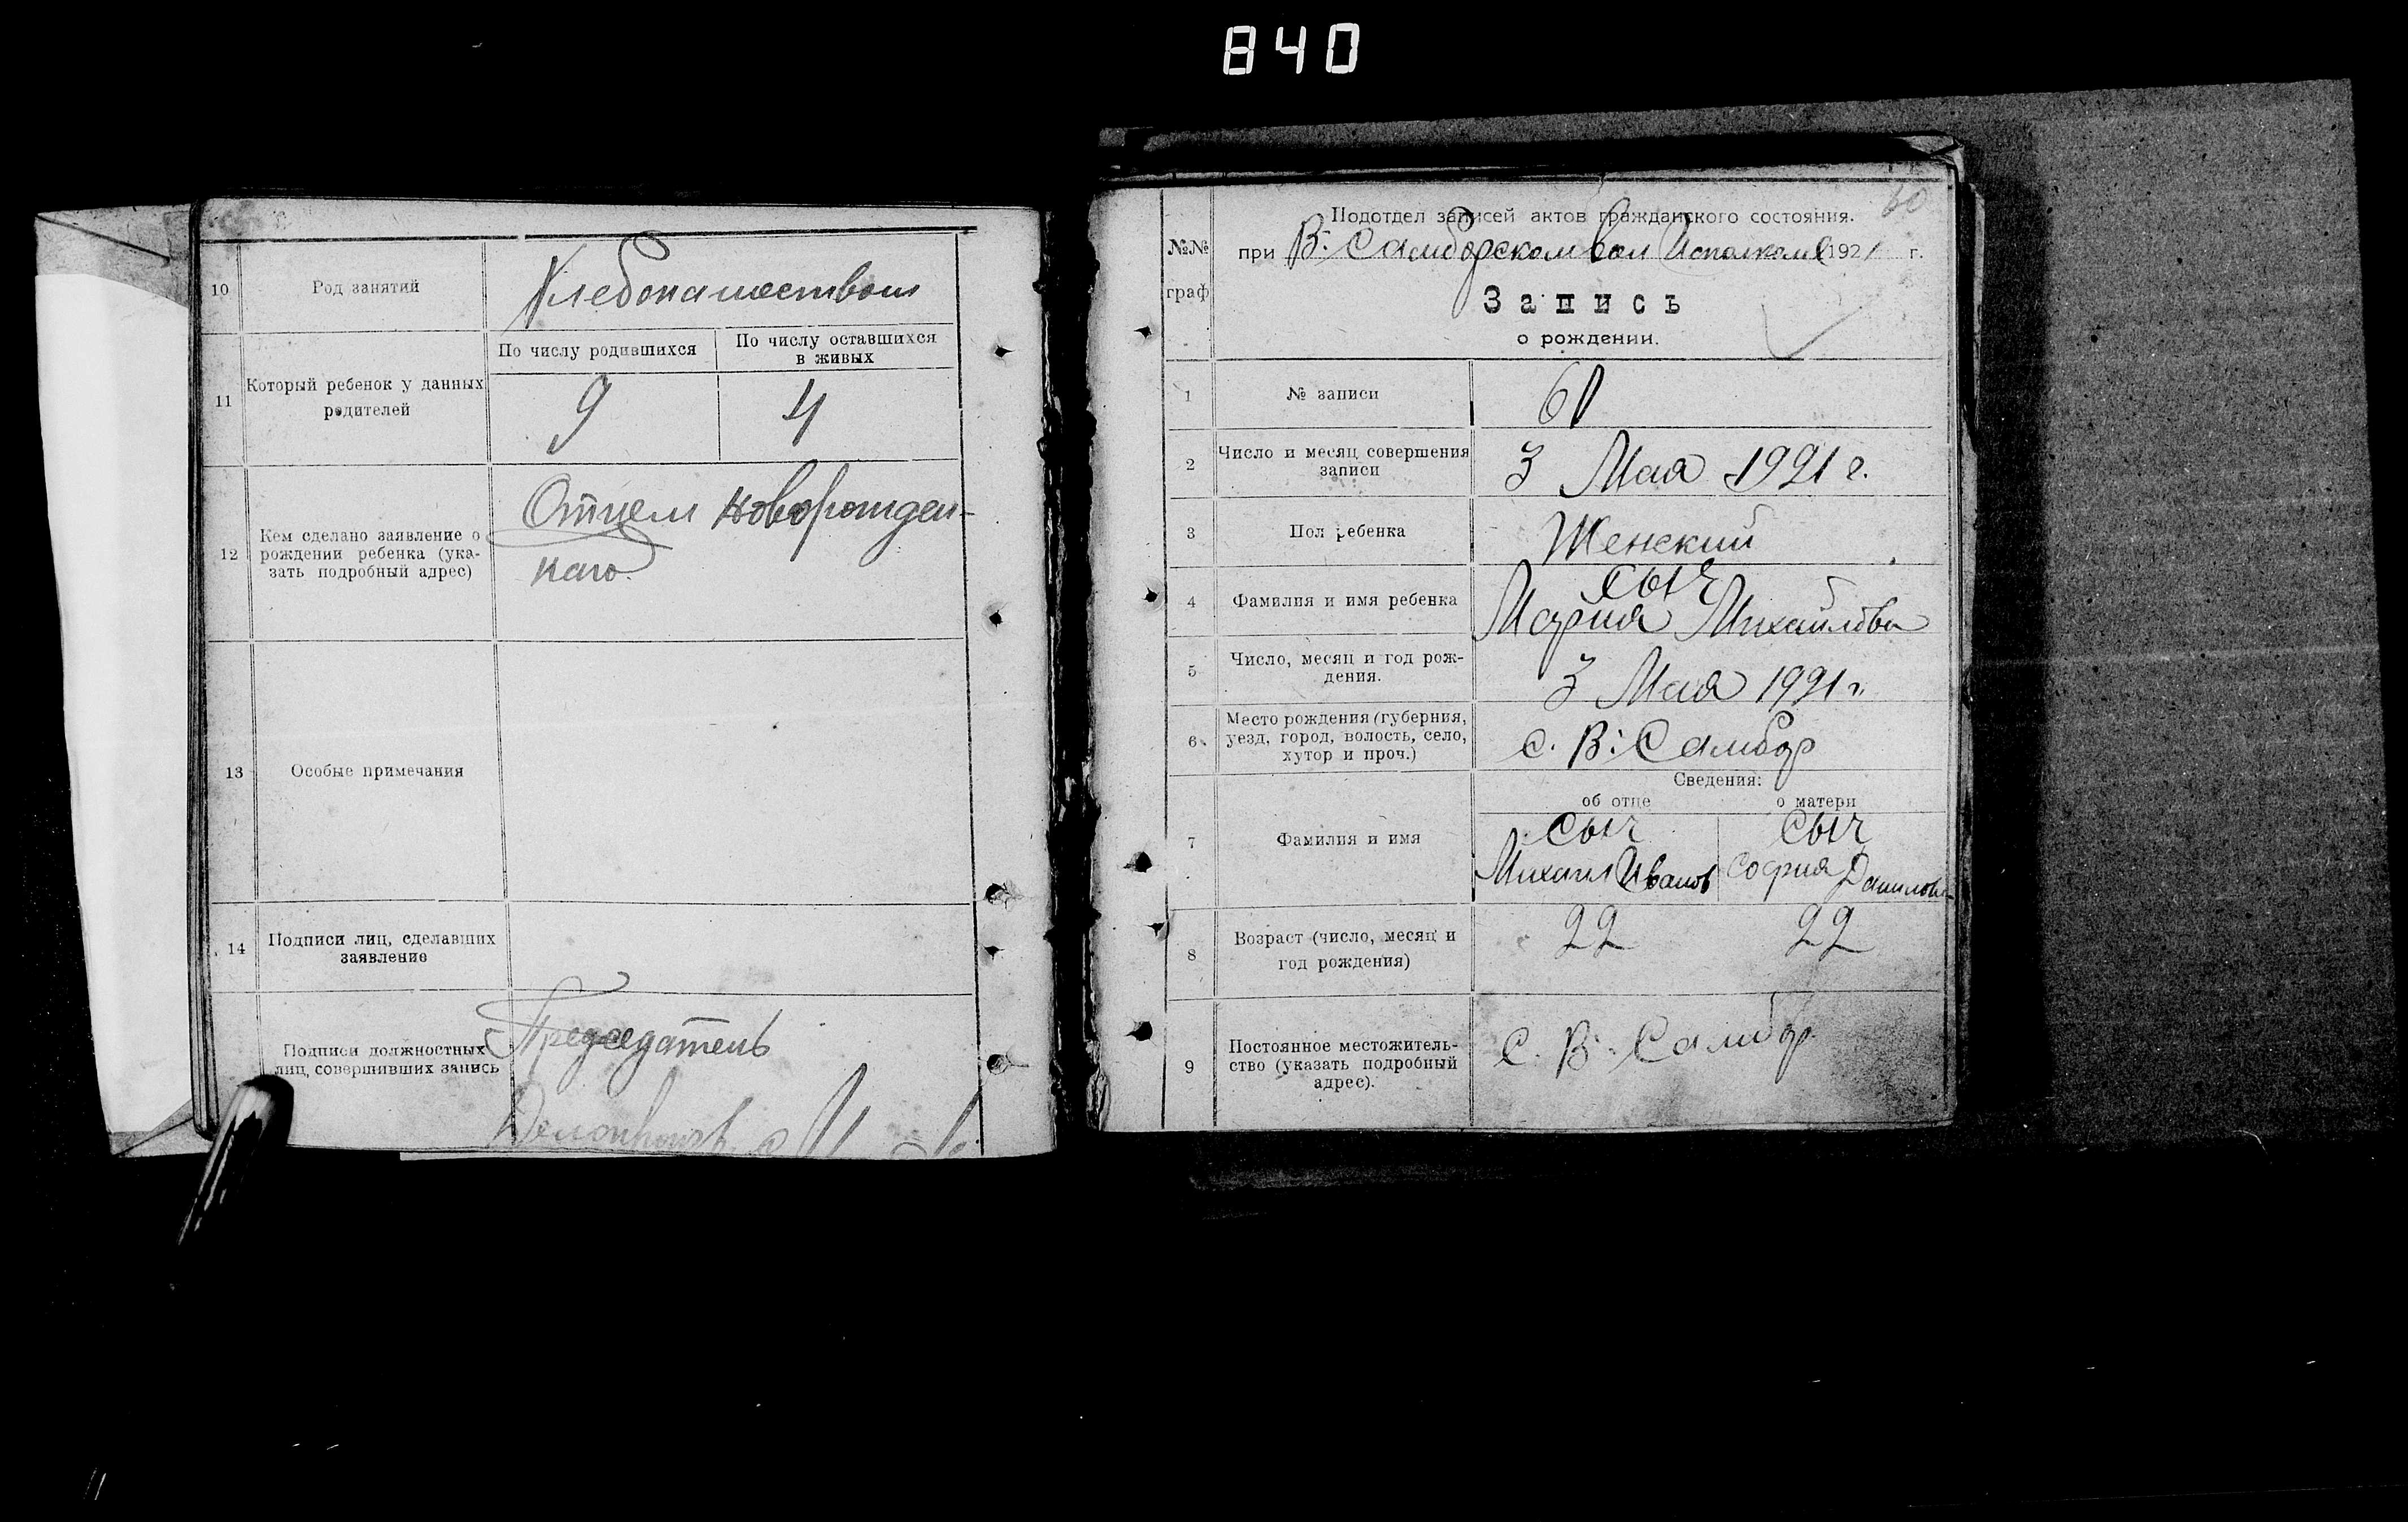 840
10
Род занятий
Хлебопашеством
11
Который ребенок у данных
родителей
По числу родившихся
По числу оставшихся
в живых
9
4
12
Кем сделано заявление о
рождении ребенка (ука-
зать подробный адрес)
Отцем новорожден-
наго.
13
Особые примечания
14
Подписи лиц, сделавших
заявление
Подписи должностных
лиц, совершивших запись
Председатель
60
№№
граф
Подотдел записей актов гражданского состояния.
при В: Самборском Вол Исполкоме 1921 г.
Запись
о рождении.
1
№ записи
60
2
Число и месяц совершения
записи
3 Мая 1921 г.
3
Пол ребенка
Женский
4
Фамилия и имя ребенка
Сыч
Мария Михайлова
5
Число, месяц и год рож-
дения.
3 Мая 1921 г.
6
Место рождения (губерния,
уезд, город, волость, село,
хутор и проч.)
с. В: Самбор
Сведения:
об отце
о матери
7
Фамилия и имя
Сыч
Михаил Иванов
Сыч
София Данилова
8
Возраст (число, месяц и
год рождения)
22
22
9
Постоянное местожитель-
ство (указать подробный
адрес).
С. В: Самбор.